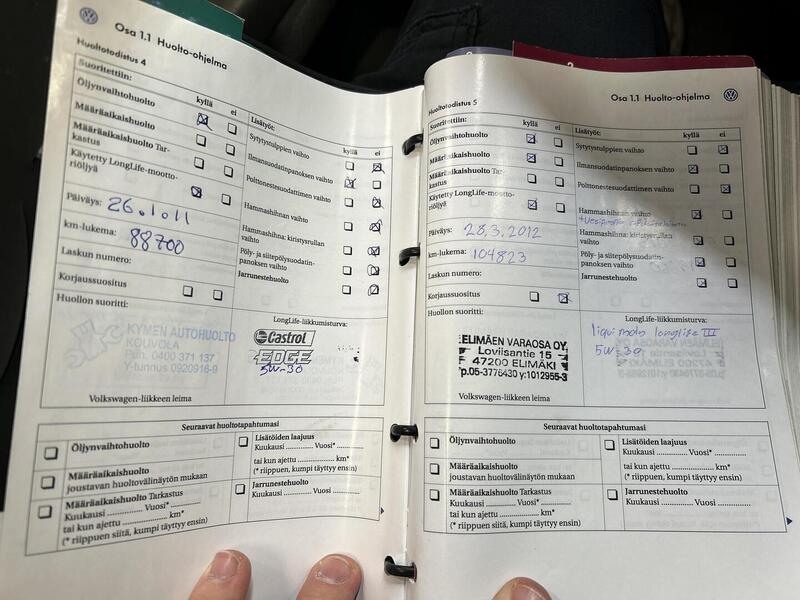 Osa 1.1 Huolto-ohjelma
Huoltotodistus 4
Suoritettiin:
kyllä ei
Öljynvaihtohuolto
Määräaikaishuolto
Määräaikaishuolto Tar-
kastus
Käytetty LongLife-mootto-
riöljyä
Päiväys: 26.1.11
km-lukema: 88700
Laskun numero:
Korjaussuositus
Huollon suoritti:
Lisätyöt:
kyllä ei
Sytytystulppien vaihto
Ilmansuodatinpanoksen vaihto
Polttonestesuodattimen vaihto
Hammashihnan vaihto
Hammashihna: kiristysrullan
vaihto
Pöly- ja siitepölysuodatin-
panoksen vaihto
Jarrunestehuolto
KYMEN AUTOHUOLTO
KOUVOLA
Puh. 0400 371 137
Y-tunnus 0920916-9
Volkswagen-liikkeen leima
LongLife-liikkumisturva:
Castrol
EDGE
5W-30
Seuraavat huoltotapahtumasi
Öljynvaihtohuolto
Määräaikaishuolto
joustavan huoltovälinäytön mukaan
Määräaikaishuolto Tarkastus
Kuukausi .............. Vuosi*..........
tai kun ajettu .................... km*
(* riippuen siitä, kumpi täyttyy ensin)
Lisätöiden laajuus
Kuukausi .............. Vuosi* ..........
tai kun ajettu .................... km*
(* riippuen, kumpi täyttyy ensin)
Jarrunestehuolto
Kuukausi .............. Vuosi ..........
Osa 1.1 Huolto-ohjelma
Huoltotodistus 5
Suoritettiin:
kyllä ei
Öljynvaihtohuolto
Määräaikaishuolto
Määräaikaishuolto Tar-
kastus
Käytetty LongLife-mootto-
riöljyä
Päiväys: 28.3.2012
km-lukema: 104823
Laskun numero:
Korjaussuositus
Huollon suoritti:
Lisätyöt:
kyllä ei
Sytytystulppien vaihto
Ilmansuodatinpanoksen vaihto
Polttonestesuodattimen vaihto
Hammashihnan vaihto
Hammashihna: kiristysrullan
vaihto
Pöly- ja siitepölysuodatin-
panoksen vaihto
Jarrunestehuolto
ELIMÄEN VARAOSA OY,
Loviisantie 15
47200 ELIMÄKI
p.05-3776430 y:1012955-3
Volkswagen-liikkeen leima
LongLife-liikkumisturva:
liqui moly longlife III
5W-30
Seuraavat huoltotapahtumasi
Öljynvaihtohuolto
Määräaikaishuolto
joustavan huoltovälinäytön mukaan
Määräaikaishuolto Tarkastus
Kuukausi .............. Vuosi*..........
tai kun ajettu .................... km*
(* riippuen siitä, kumpi täyttyy ensin)
Lisätöiden laajuus
Kuukausi .............. Vuosi* ..........
tai kun ajettu .................... km*
(* riippuen, kumpi täyttyy ensin)
Jarrunestehuolto
Kuukausi .............. Vuosi ..........